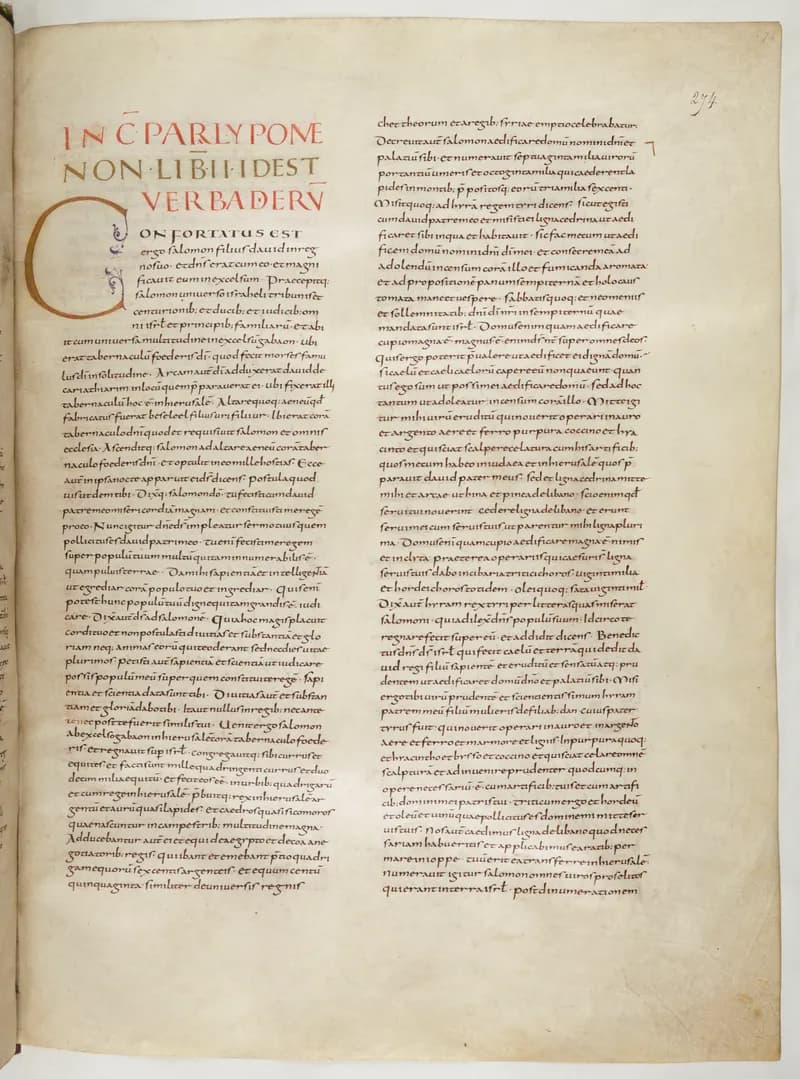 274
INC̄ PARLYPOME
NON · LIB̄ · II · ID EST
VERBA DIERŪ
CONFORTATUS EST
ergo salomon filius dauid in reg
no suo · et dn̄s erat cum eo · et magni
ficauit eum in excelsum · Praecepitq;
salomon uniuerso israheli tribunis et
centurionib; et ducib; et iudicib; om
nis isrł et principib; familiarū · et abi
it cum uniuersa multitudine in excelsū gabaon · ubi
erat tabernaculū foederis dī · quod fecit moyses famu
lus dī in solitudine · Arcam aut̄ dī adduxerat dauid de
cariathiarim in locū quem p̄parauerat ei · ubi fixerat illi
tabernaculū hoc ē in hierusalē · Altare quoq; aeneū qd̄
fabricatus fuerat beseleel filius uri filii ur · ibi erat corā
tabernaculo dn̄i quod et requisiuit salomon et omnis
ecclesia · Ascenditq; salomon ad altare aeneū corā taber
naculo foederis dn̄i · et optulit in eo mille hostias · Ecce
aut̄ in ipsa nocte apparuit ei ds̄ dicens · postula quod
uis ut dem tibi · Dixitq; salomon dō · tu fecisti cum dauid
patre meo misericordiam magnam · et constituisti me regē
pro eo · Nunc igitur dn̄e ds̄ impleatur sermo tuus quem
pollicitus es dauid patri meo · tu enī fecisti me regem
super populū tuum multū qui tam innumerabilis ē ·
quam puluis terrae · Da mihi sapientiā et intellegentiā
ut egrediar corā populo tuo et ingrediar · Quis enī
potest hunc populū tuū digne qui tam grandis ē · iudi
care · Dixit aut̄ ds̄ ad salomonē · Quia hoc magis placuit
cordi tuo et non postulasti diuitias et substantiā et glo
riam neq; animas eorū qui te oderant sed nec dies uitae
plurimos · petisti aut̄ sapientiā et scientiā ut iudicare
possis populū meū super quem constitui te regē · sapi
entia et scientia data sunt tibi · Diuitias aut̄ et substan
tiam et gloriā dabo tibi · ita ut nullus in regib; nec ante
te nec post te fuerit similis tui · Uenit ergo salomon
ab excelso gabaon in hierusalē corā tabernaculo foede
ris et regnauit sup̄ isrł · congregauitq; sibi currus et
equites et facti sunt mille quadringenti currus et duo
decim milia equitū · et fecit eos eē in urbib; quadrigarū
et cum rege in hierusalē · p̄buitq; rex in hierusalē ar
gentū et aurū quasi lapides · et caedros quasi sicomoros
quae nascuntur in campestrib; multitudine magna ·
Adducebantur aut̄ ei et equi de aegypto et de coa a ne
gotiatorib; regis · qui ibant et emebant p̄tio quadri
gam equorū sexcentis argenteis · et equum centū
quinquaginta · similiter de uniuersis regnis
chettheorum et a regib; syriae emptio celebrabatur ·
Decreuit aut̄ salomon aedificare domū nomini dn̄i et
palatiū sibi · et numerauit septuaginta milia uirorū
portantiū umeris et octoginta milia qui caederent la
pides in montib; p̄positosq; eorū tria milia sexcenti ·
Misit quoq; ad hyrā regem tyri dicens · sicut egisti
cum dauid patre meo et misisti ei ligna cedrina ut aedi
ficaret sibi in qua et habitauit · sic fac mecum ut aedi
ficem domū nomini dn̄i dī mei · et consecrem eā ad
adolendū incensum corā illo et fumicanda aromata
et ad propositionē panum sempiternā et holocaus
tomata mane et uespere · sabbatisquoq; et neomeniis
et sollemnitatib; dn̄i dī nr̄i in sempiternū quae
mandata sunt isrł · Domus enim quam aedificare
cupio magna ē · magnus ē enim ds̄ nr̄ super omnes deos ·
Quis ergo poterit p̄ualere ut aedificet ei dignā domū ·
si caelū et caeli caelorū capere eū nonqueunt · quan
tus ego sum ut possim ei aedificare domū · sed ad hoc
tantum ut adoleatur incensum corā illo · Mitte igi
tur mihi uirū eruditū qui nouerit operari in auro
et argento aere et ferro purpura coccino et hya
cinto et qui sciat scalpere celatura cum his artificib;
quos mecum habeo in iudaea et in hierusalē quos p̄
parauit dauid pater meus · sed et ligna cedrina mitte
mihi et arceutina et pinea de libano · scio enim qd̄
serui tui nouerint cedere ligna de libano · et erunt
serui mei cum seruis tuis ut parentur mihi ligna pluri
ma · Domus enī quam cupio aedificare magna ē nimis
et inclyta · praeterea operariis qui caesuri s̄ ligna
seruis tuis dabo in cibaria tritici choros uiginti milia
et hordei choros totidem · olei quoq; sata uiginti mił
Dixit aut̄ hyram rex tyri per litteras quas miserat
salomoni · quia dilexit dn̄s populū suum · Idcirco te
regnare fecit super eū · et addidit dicens · Benedic
tus dn̄s ds̄ isrł qui fecit caelū et terrā qui dedit da
uid regi filiū sapientē · et eruditū et sensatū atq; pru
dentem ut aedificaret domū dn̄o et palatiū sibi · Misi
ergo tibi uirū prudentē et scientissimum hyram
patrem meū filiū mulieris de filiab; dan · cuius pater
tyrius fuit · qui nouerit operari in auro et argento
aere et ferro et marmore et lignis In purpura quoq;
et hyacintho et bysso et coccino et qui sciat celare omnē
scalpturā et adinuenire prudenter quodcumq; in
opere necessariū ē · cum artificib; tuis et cum artifi
cib; domini mei patris tui · triticum ergo et hordeū
et oleū et uinū quae pollicitus es domine mi mitte ser
uis tuis · Nos aut̄ caedimus ligna de libano quod neces
saria habueritis · et applicabimus ea ratib; per
mare in ioppe · tuū erit ea transferre in hierusalē ·
Numerauit igitur salomon omnes uiros proselitos
qui erant in terra isrł · post dinumerationem